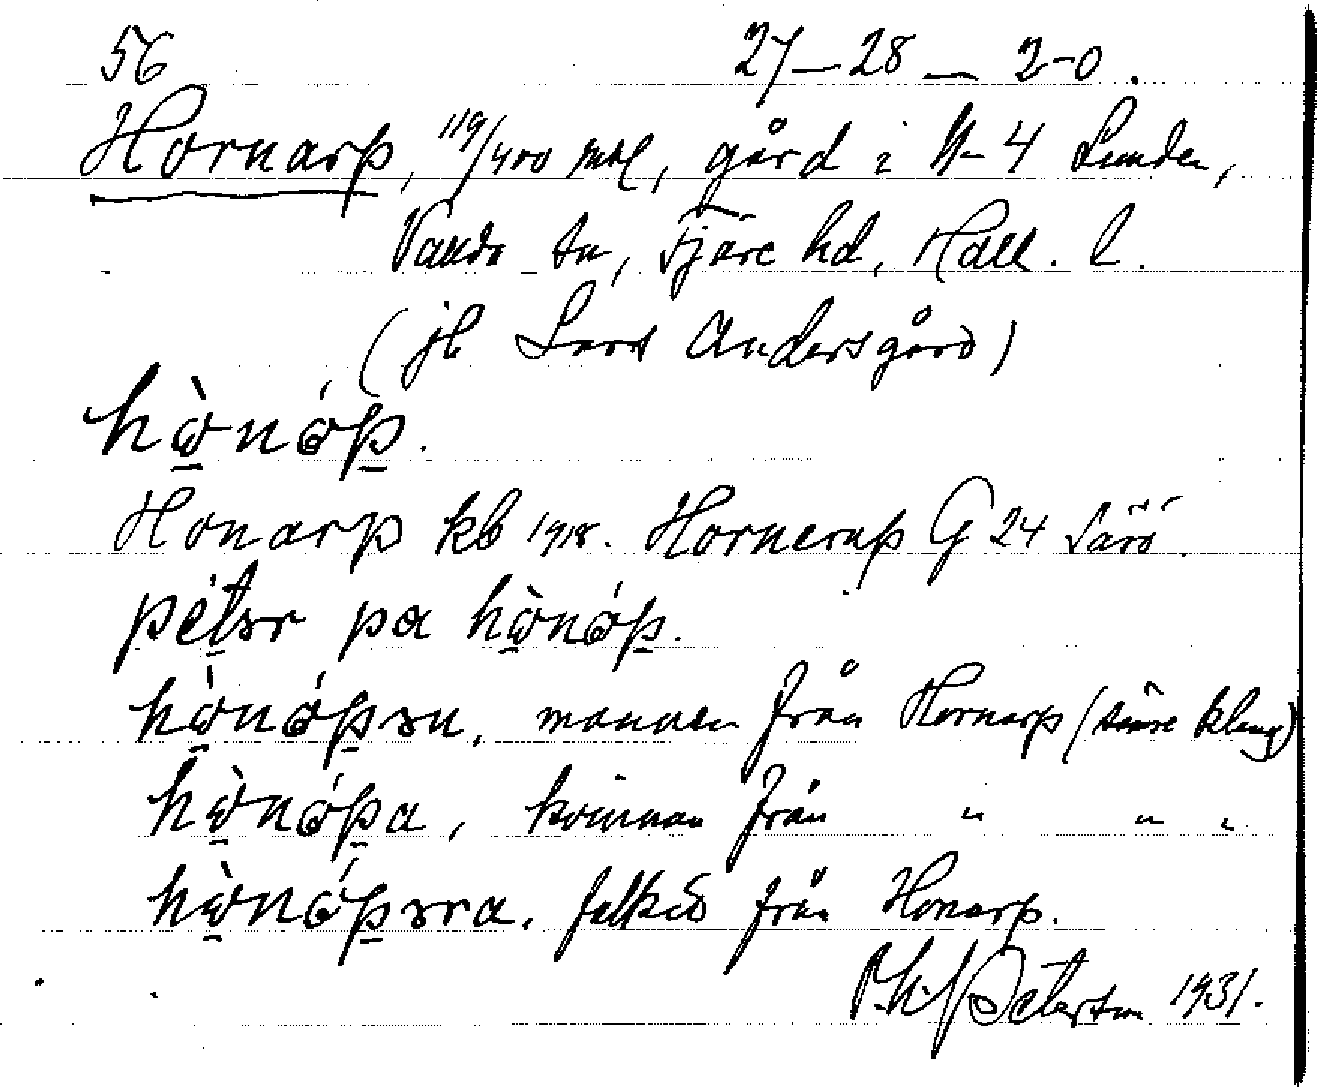 56 27–28 – 2-0.
Hornarp, 119/400 mtl, gård i N-4 Lunden,
Vallda sn, Fjäre hd, Hall. l.
(jb Lars Andersgård)
hὼnάp.
Honarp kb 1918. Hornerup G 24 Särö.
petər pa hὼnάp.
hὼnάpən, mannen från Hornarp (större klang)
hὼnάpa, kvinnan från " " "
hὼnάpəra, folket från Honarp.
P. Peterson 1931.